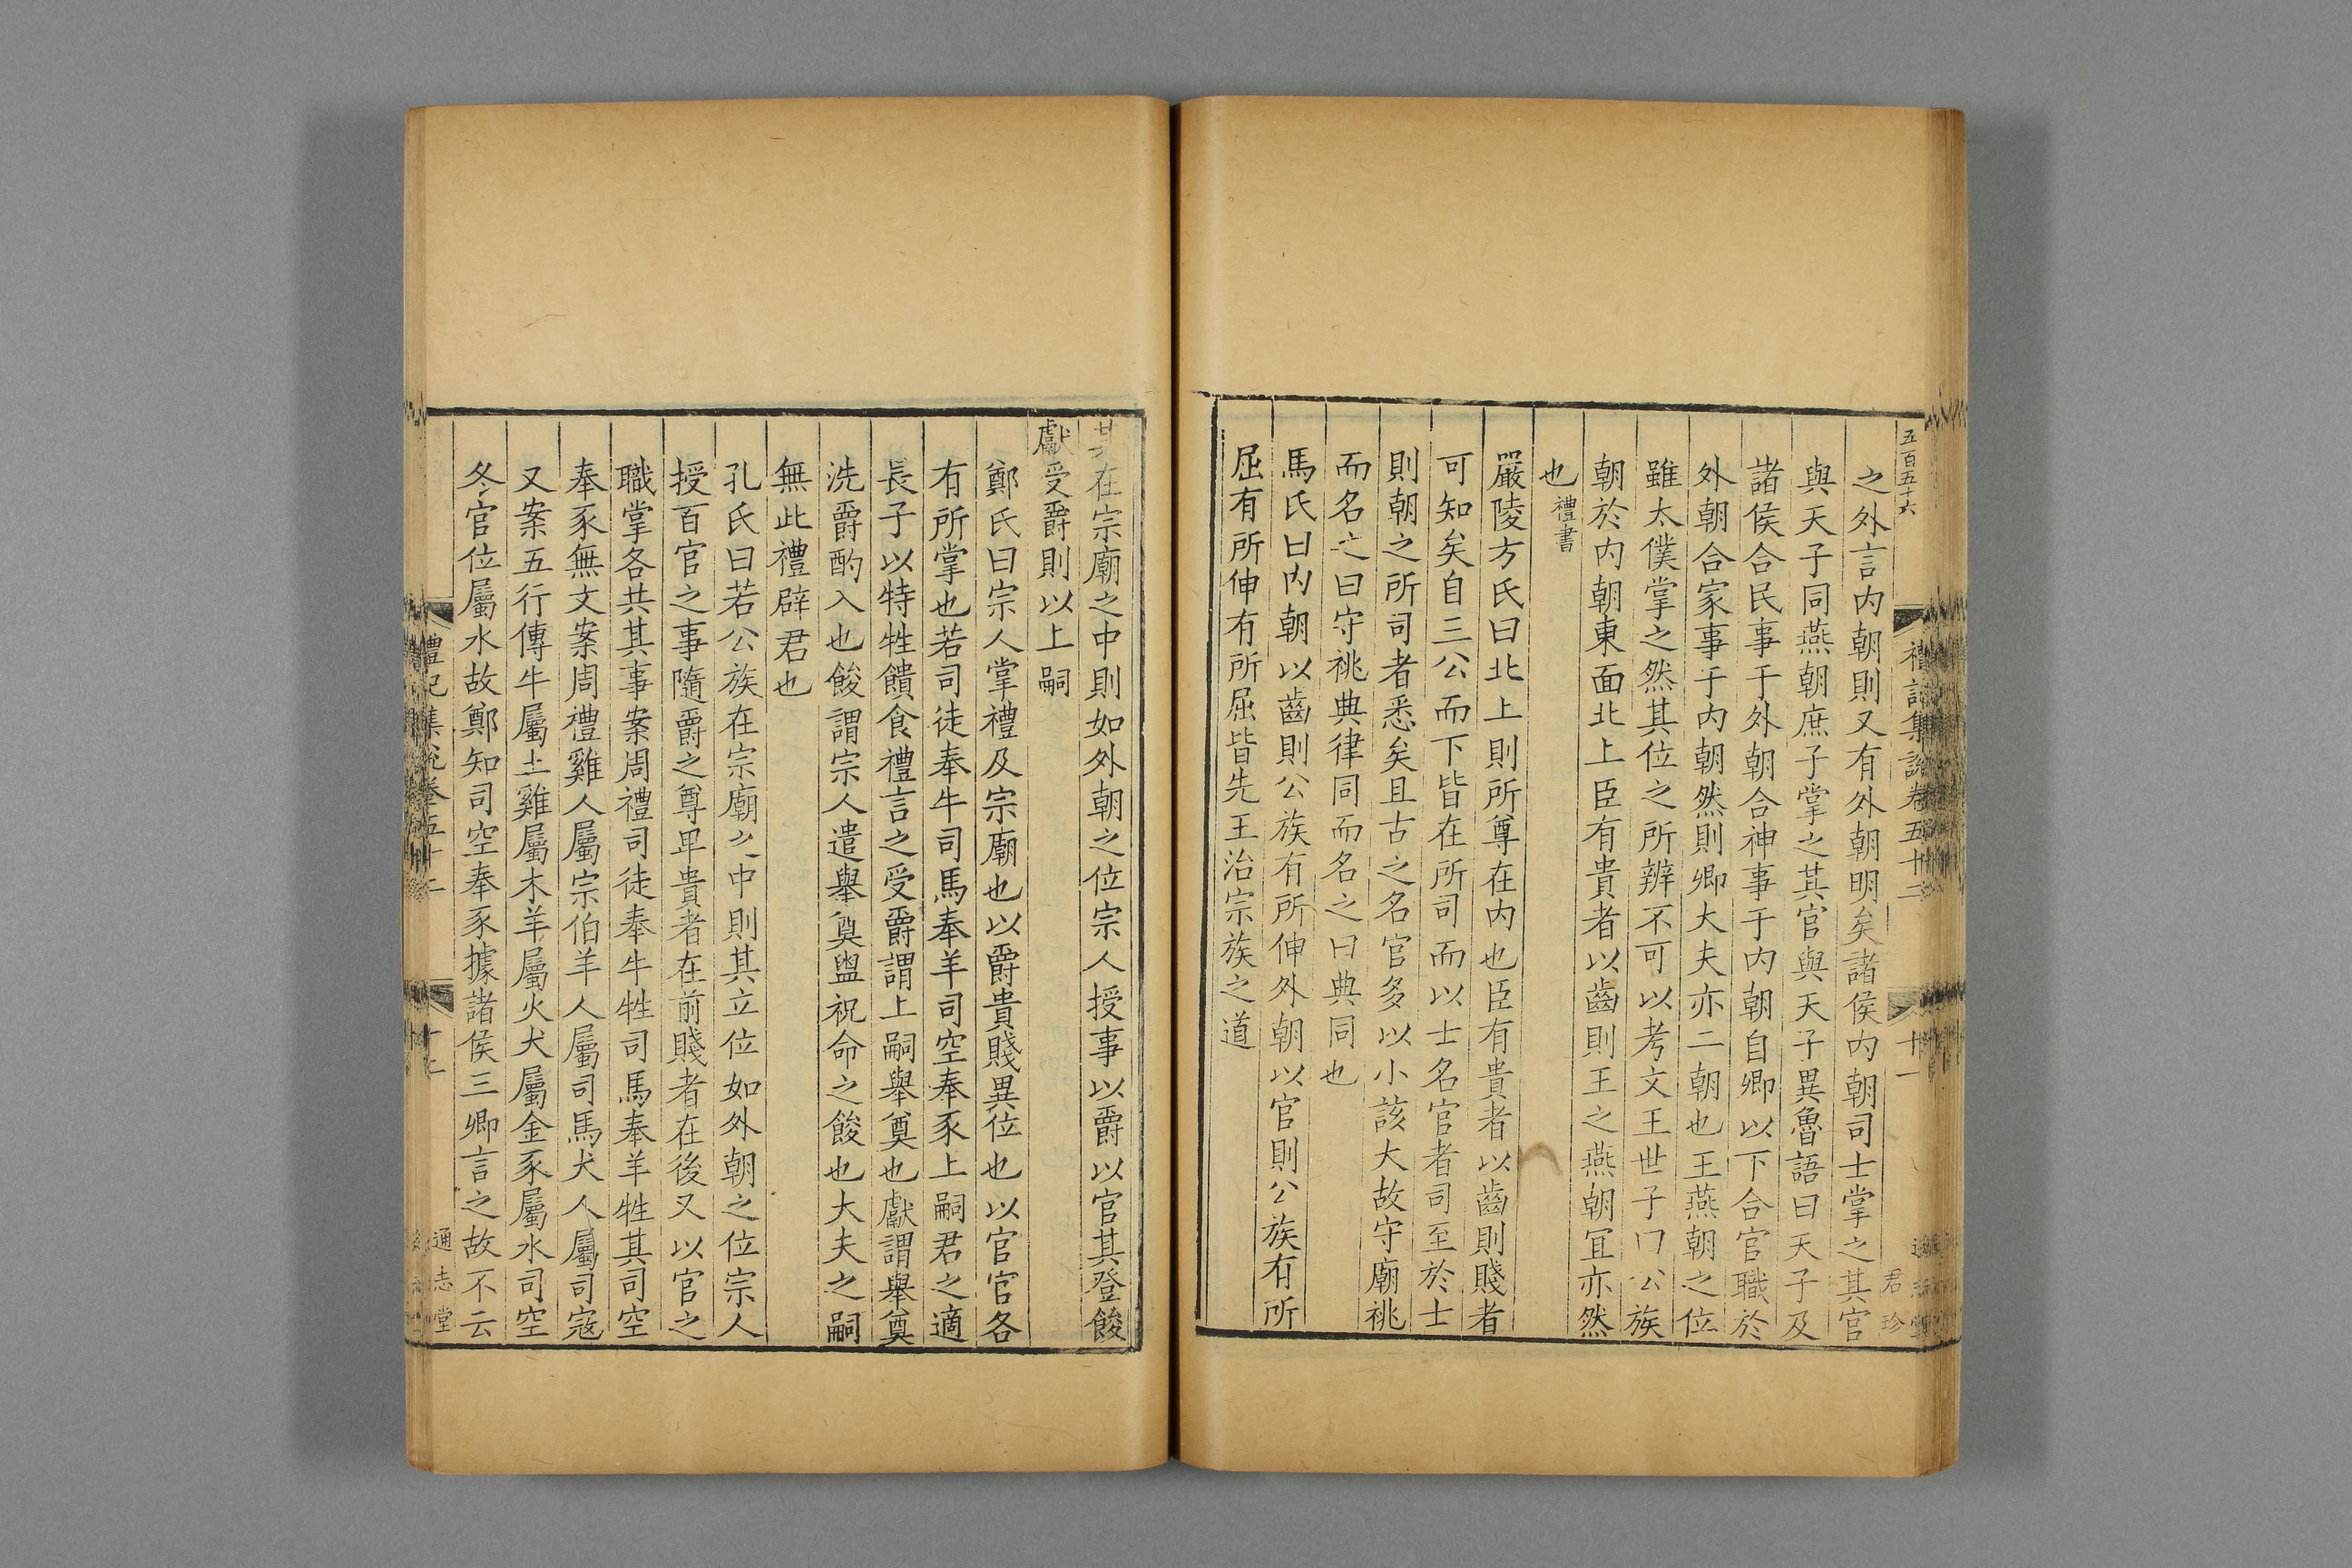 五百五十六
禮記集說卷五十二
十一
君珍
之外言内朝則又有外朝明矣諸侯内朝司士掌之其官
與天子同燕朝庶子掌之其官與天子異魯語曰天子及
諸侯合民事于外朝合神事于内朝自卿以下合官職於
外朝合家事于内朝然則卿大夫亦二朝也王燕朝之位
雖太僕掌之然其位之所辨不可以考文王世子曰公族
朝於内朝東面北上臣有貴者以齒則王之燕朝宜亦然
也禮書
嚴陵方氏曰北上則所尊在内也臣有貴者以齒則賤者
可知矣自三公而下皆在所司而以士名官者司至於士
則朝之所司者悉矣且古之名官多以小該大故守廟祧
而名之曰守祧典律同而名之曰典同也
馬氏曰内朝以齒則公族有所伸外朝以官則公族有所
屈有所伸有所屈皆先王治宗族之道
其在宗廟之中則如外朝之位宗人授事以爵以官其登餕
獻受爵則以上嗣
鄭氏曰宗人掌禮及宗廟也以爵貴賤異位也以官官各
有所掌也若司徒奉牛司馬奉羊司空奉豕上嗣君之適
長子以特牲饋食禮言之受爵謂上嗣舉奠也獻謂舉奠
洗爵酌入也餕謂宗人遣舉奠盥祝命之餕也大夫之嗣
無此禮辟君也
孔氏曰若公族在宗廟之中則其立位如外朝之位宗人
授百官之事隨爵之尊卑貴者在前賤者在後又以官之
職掌各共其事案周禮司徒奉牛牲司馬奉羊牲其司空
奉豕無文案周禮雞人屬宗伯羊人屬司馬犬人屬司寇
又案五行傳牛屬土雞屬木羊屬火犬屬金豕屬水司空
冬官位屬水故鄭知司空奉豕據諸侯三卿言之故不云
禮記集說卷五十二
十二
通志堂